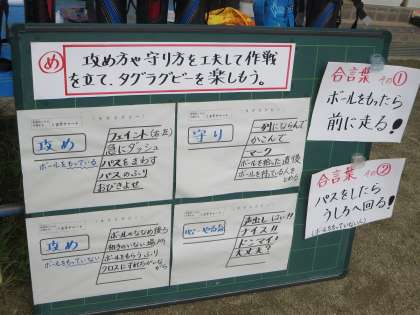 め 攻め方や守り方を工夫して作戦
を立て、タグラグビーを楽しもう。
合言葉 その①
ボールをもったら
前に走る!
合言葉 その②
パスをしたら
うしろへ回る!
(ボールをもっていない人)
攻め
ボールをもっている
フェイント(右左)
急にダッシュ
パスをまわす
パスのふり
おびきよせ
守り
一列にならんで
かこんで
マーク
ボールを持っている人を
とめる
攻め
ボールをもっていない
ボールのななめ後ろ
相手のいない場所
ボールをもらうふり
クロスに
心・やる気
声出し
ナイス!!
ドンマイ!
大丈夫?